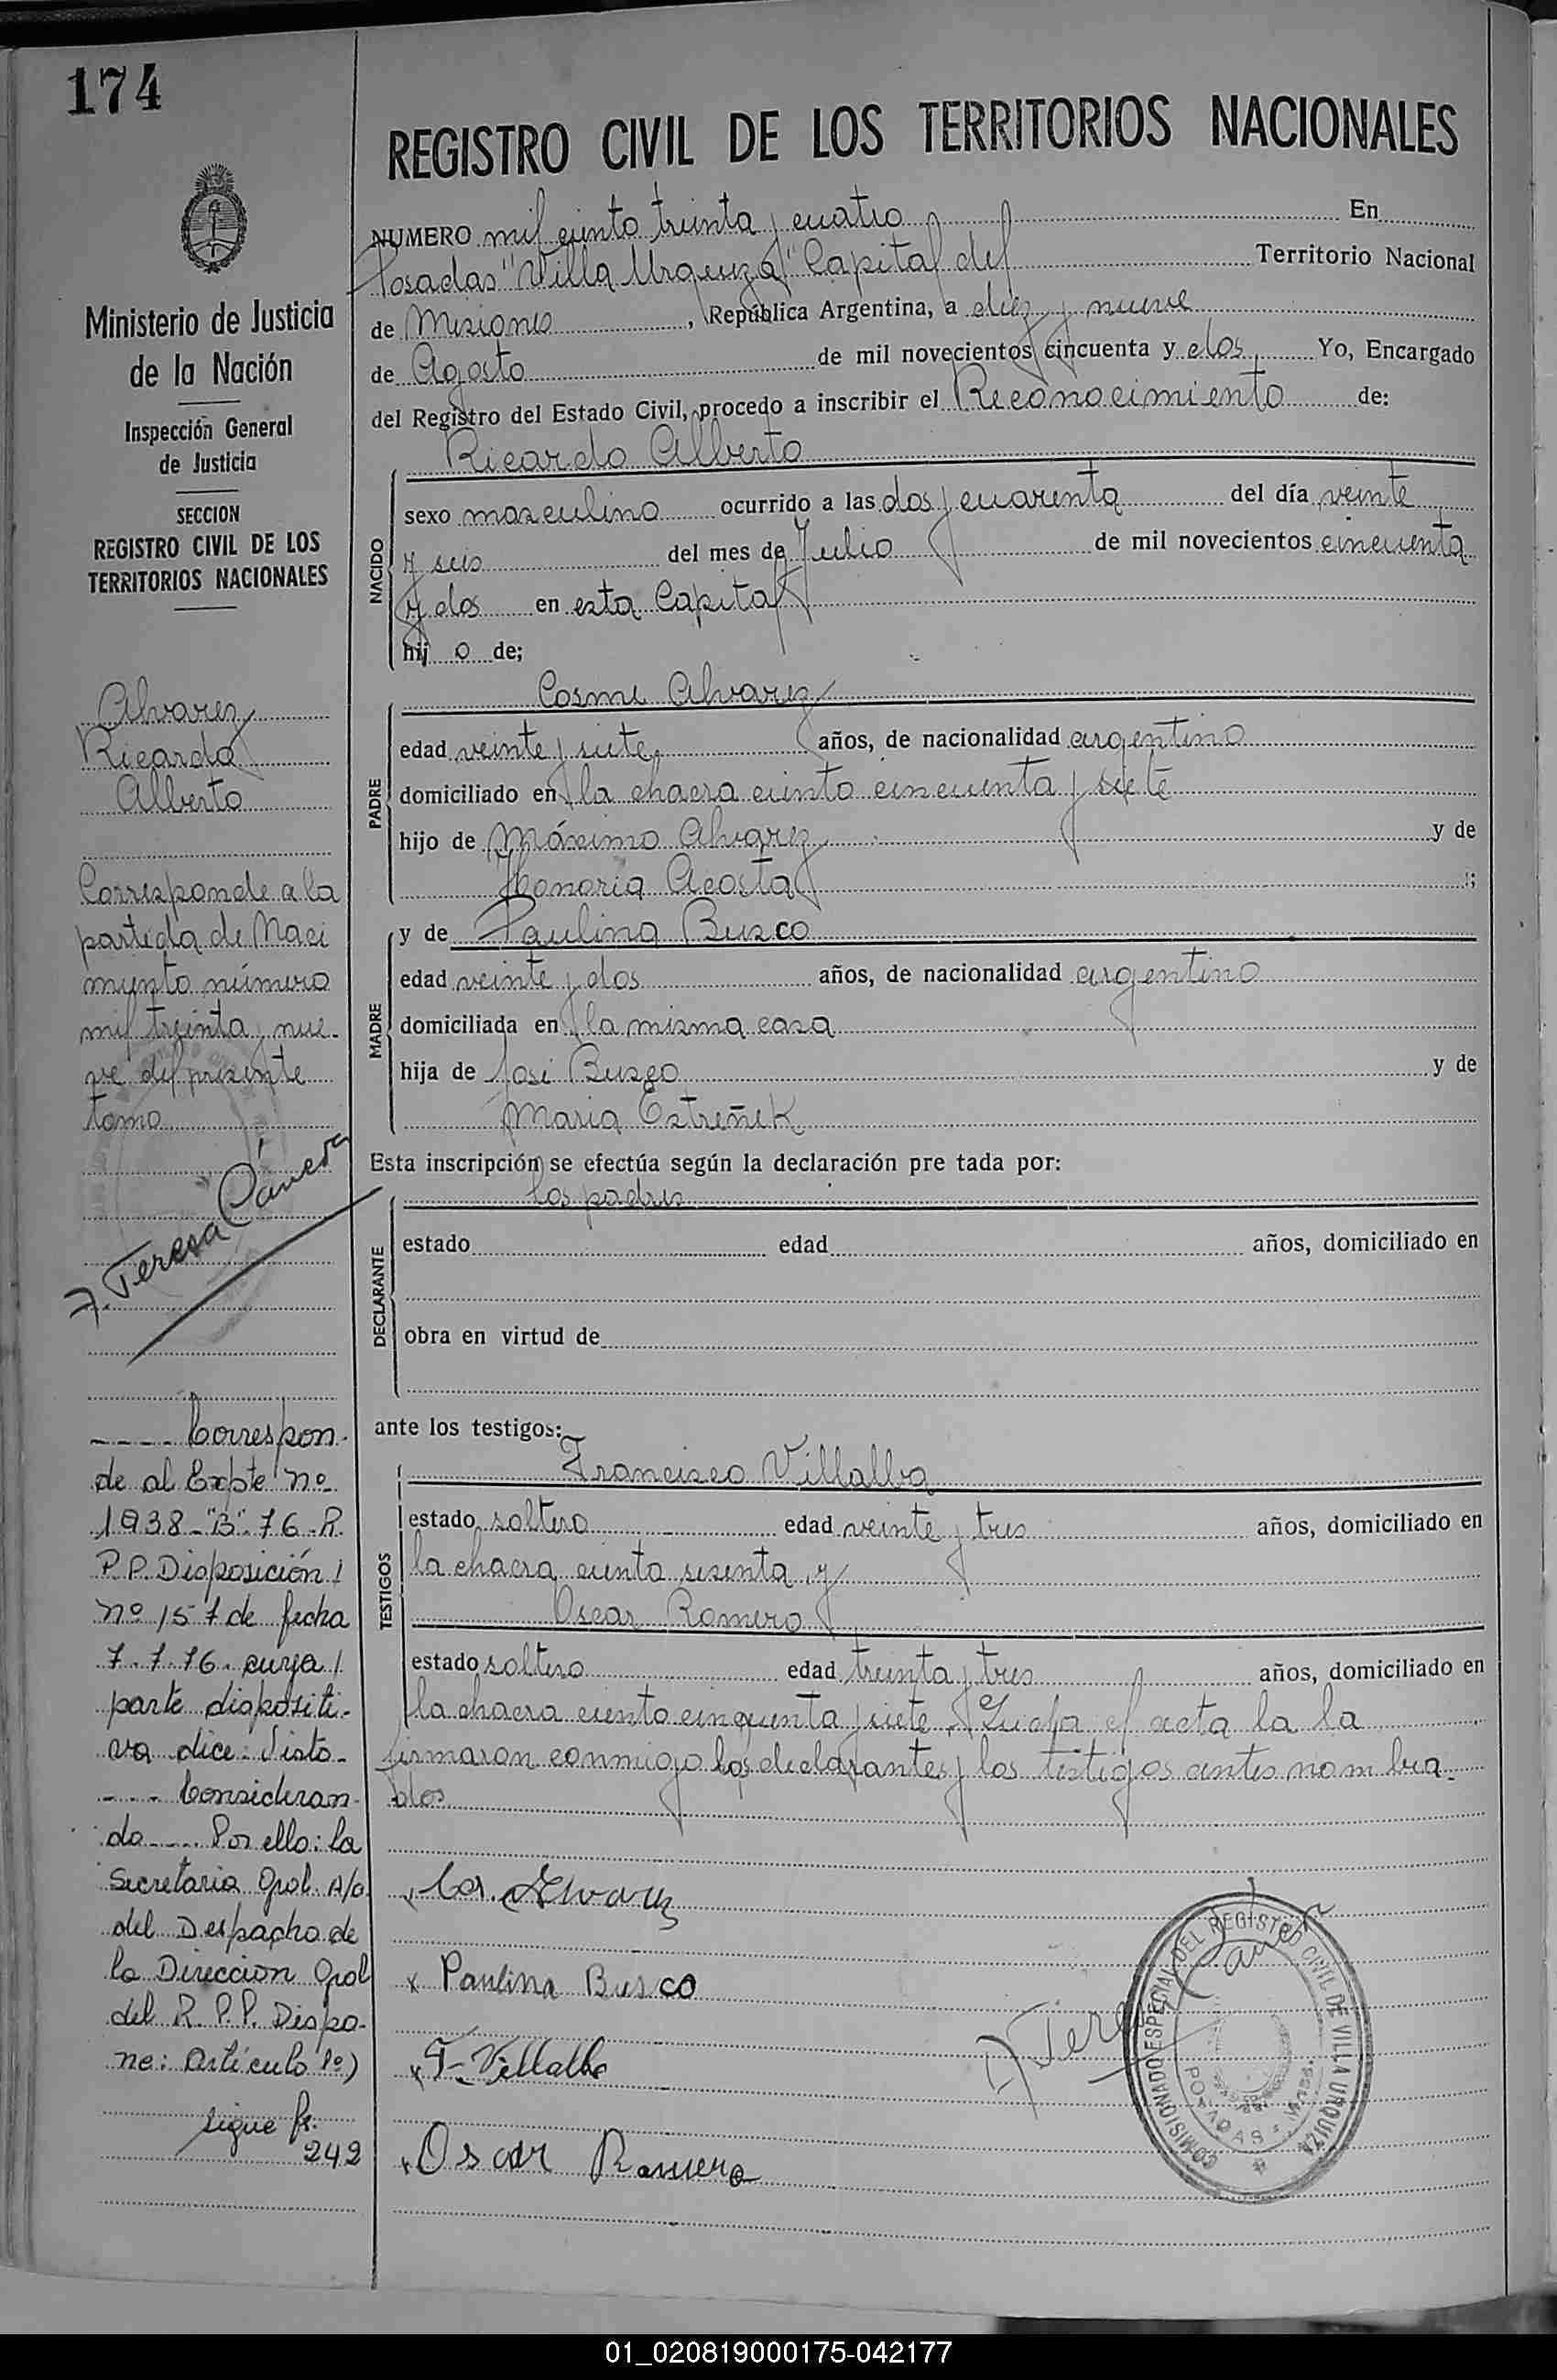 174
Ministerio de Justicia
de la Nación
Inspección General
de Justicia
SECCION
REGISTRO CIVIL DE LOS
TERRITORIOS NACIONALES
Alvarez
Ricardo
Alberto
Corresponde a la
partida de Naci
miento número
mil treinta y nue-
ve del presente
tomo
F. Teresa Cánera
---- Correspon-
de al Expte nº
1938-"B"-76-R.
P.P. Disposición/
nº 157 de fecha
7.7.76. cuya/
parte dispositi-
va dice: Visto-
---- Consideran-
do---- Por ello: la
Secretaria Gral. A/c.
del Despacho de
la Direccion Gral
del R.P.P. Dispo-
ne: Artículo 1º)
sigue fs.
242
REGISTRO CIVIL DE LOS TERRITORIOS NACIONALES
NUMERO mil ciento treinta y cuatro En
Posadas "Villa Urquiza" Capital del Territorio Nacional
de Misiones, República Argentina, a diez y nueve
de Agosto de mil novecientos cincuenta y dos Yo, Encargado
del Registro del Estado Civil, procedo a inscribir el Reconocimiento de:
Ricardo Alberto
NACIDO
sexo masculino ocurrido a las dos y cuarenta del día veinte
y seis del mes de Julio de mil novecientos cincuenta
y dos en esta Capital
hij o de;
Cosme Alvarez
PADRE
edad veinte y siete años, de nacionalidad argentino
domiciliado en la chacra ciento cincuenta y siete
hijo de Máximo Alvarez y de
Honoria Acosta ;
y de Paulina Busco
MADRE
edad veinte y dos años, de nacionalidad argentino
domiciliada en la misma casa
hija de José Busco y de
Maria Estreñek
Esta inscripción se efectúa según la declaración pre tada por:
los padres
DECLARANTE
estado edad años, domiciliado en
obra en virtud de
ante los testigos:
Francisco Villalba
TESTIGOS
estado soltero edad veinte y tres años, domiciliado en
la chacra ciento sesenta y
Oscar Romero
estado soltero edad treinta y tres años, domiciliado en
la chacra ciento cinquenta y siete. Leida el acta la la
firmaron conmigo los declarantes y los testigos antes nombra-
dos
Cos. Alvarez
x Paulina Busco
x F. Villalba
x Oscar Romero
COMISIONADO ESPECIAL DEL REGISTRO CIVIL DE VILLA URQUIZA
POSADAS
01_020819000175-042177